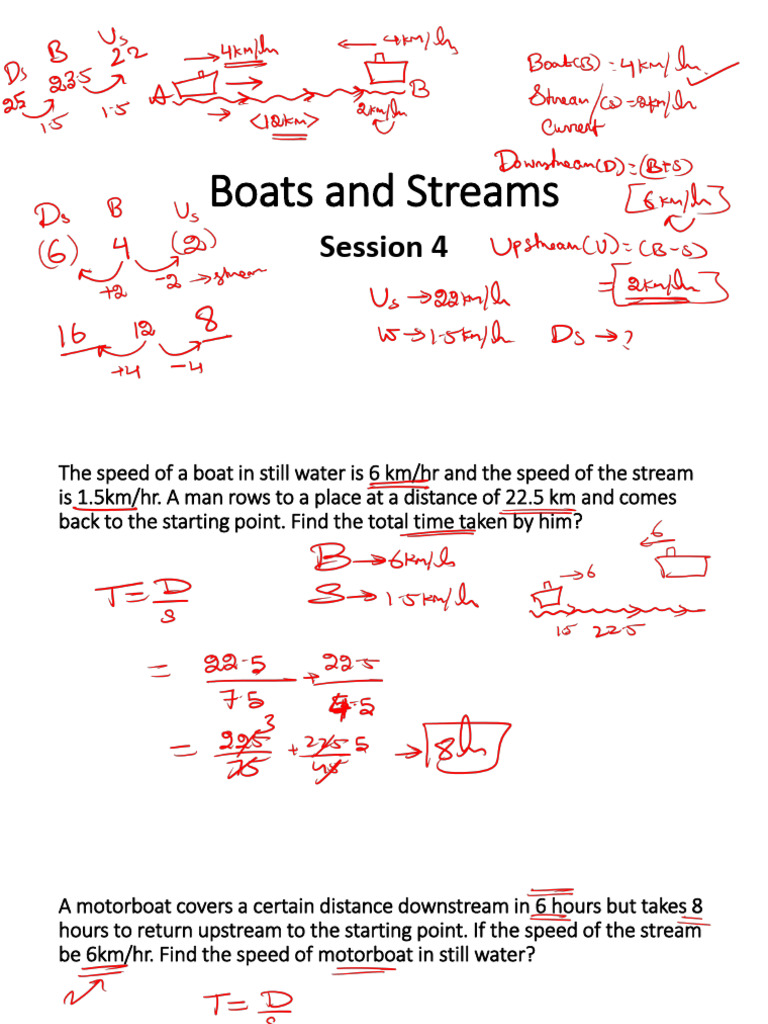 Ds B Us
25 23.5 22
1.5 1.5
4km/hr
4km/hr
A B
<12km>
2km/hr
Boat(B) = 4km/hr
Stream/(S) = 2km/hr
Current
Downstream(D) = (B+S)
[6km/hr]
Upstream(U) = (B-S)
= [2km/hr]
Boats and Streams
Session 4
Ds B Us
(6) 4 (2)
+2 -2 → stream
16 12 8
+4 -4
Us → 22km/hr
W → 1.5km/hr Ds → ?
The speed of a boat in still water is 6 km/hr and the speed of the stream
is 1.5km/hr. A man rows to a place at a distance of 22.5 km and comes
back to the starting point. Find the total time taken by him?
B → 6km/h
S → 1.5km/h
T = D/s
6
→ 6
15 22.5
= 22.5/7.5 + 22.5/4.5
= 225/75 3 + 225/45 5 → 8h
A motorboat covers a certain distance downstream in 6 hours but takes 8
hours to return upstream to the starting point. If the speed of the stream
be 6km/hr. Find the speed of motorboat in still water?
T = D/s